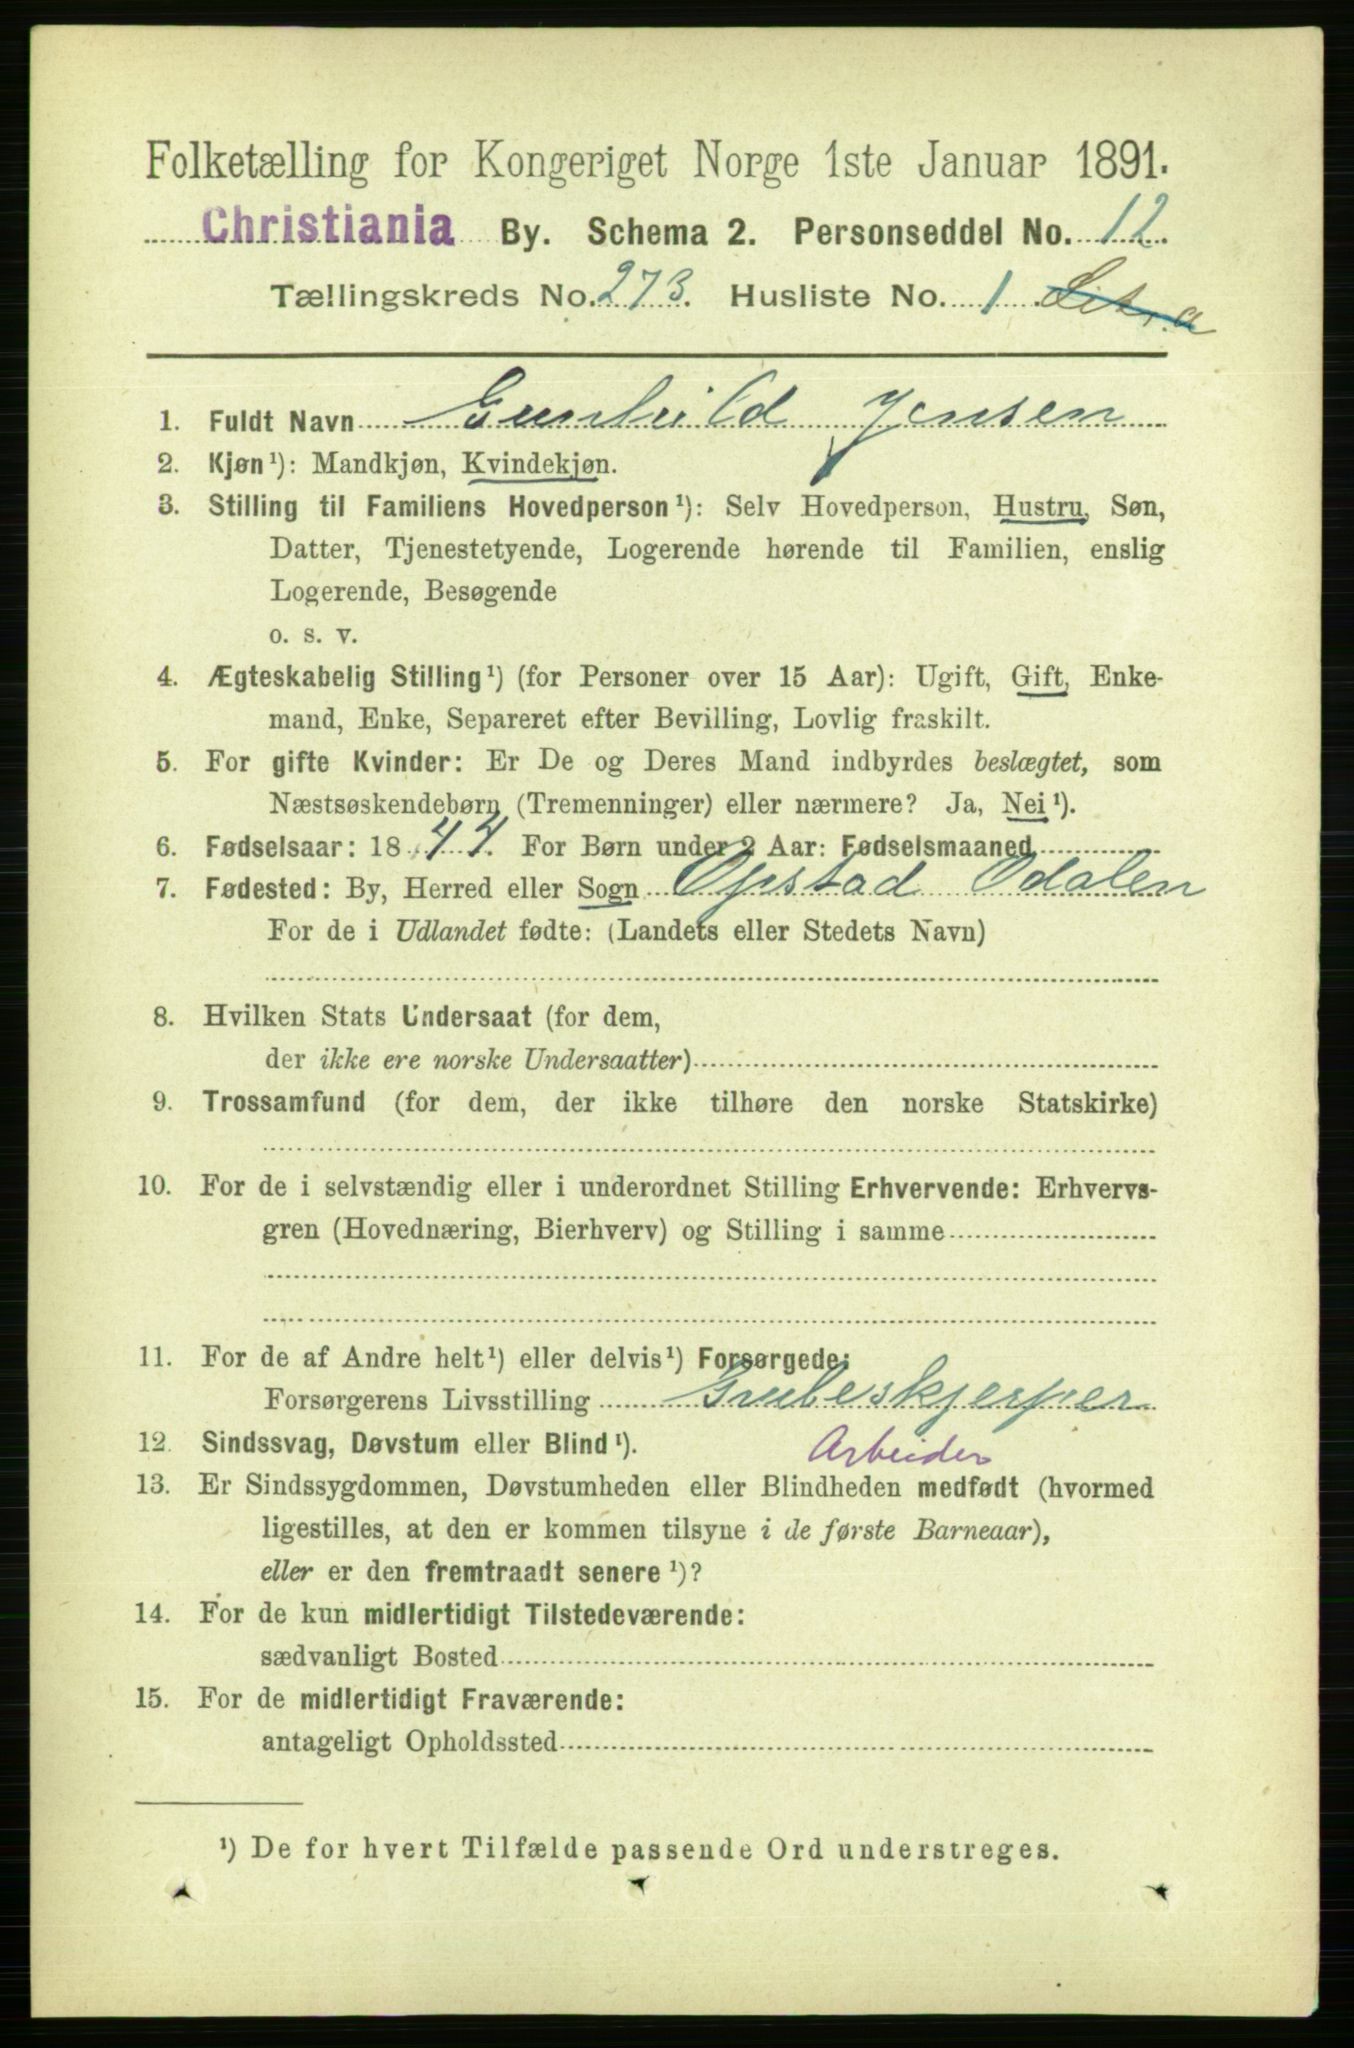 Folketælling for Kongeriget Norge 1ste Januar 1891.
Christiania By. Schema 2. Personseddel No. 12
Tællingskreds No. 273. Husliste No. 1 Litr. a
1. Fuldt Navn Gunhild Jensen
2. Kjøn¹): Mandkjøn, Kvindekjøn.
3. Stilling til Familiens Hovedperson¹): Selv Hovedperson, Hustru, Søn,
Datter, Tjenestetyende, Logerende hørende til Familien, enslig
Logerende, Besøgende
o. s. v.
4. Ægteskabelig Stilling¹) (for Personer over 15 Aar): Ugift, Gift, Enke-
mand, Enke, Separeret efter Bevilling, Lovlig fraskilt.
5. For gifte Kvinder: Er De og Deres Mand indbyrdes beslægtet, som
Næstsøskendebørn (Tremenninger) eller nærmere? Ja, Nei¹).
6. Fødselsaar: 1844. For Børn under 2 Aar: Fødselsmaaned
7. Fødested: By, Herred eller Sogn Opstad Odalen
For de i Udlandet fødte: (Landets eller Stedets Navn)
8. Hvilken Stats Undersaat (for dem,
der ikke ere norske Undersaatter)
9. Trossamfund (for dem, der ikke tilhøre den norske Statskirke)
10. For de i selvstændig eller i underordnet Stilling Erhvervende: Erhvervs-
gren (Hovednæring, Bierhverv) og Stilling i samme
11. For de af Andre helt¹) eller delvis¹) Forsørgede:
Forsørgerens Livsstilling Grubeskjerper
12. Sindssvag, Døvstum eller Blind¹). Arbeider
13. Er Sindssygdommen, Døvstumheden eller Blindheden medfødt (hvormed
ligestilles, at den er kommen tilsyne i de første Barneaar),
eller er den fremtraadt senere¹)?
14. For de kun midlertidigt Tilstedeværende:
sædvanligt Bosted
15. For de midlertidigt Fraværende:
antageligt Opholdssted
¹) De for hvert Tilfælde passende Ord understreges.